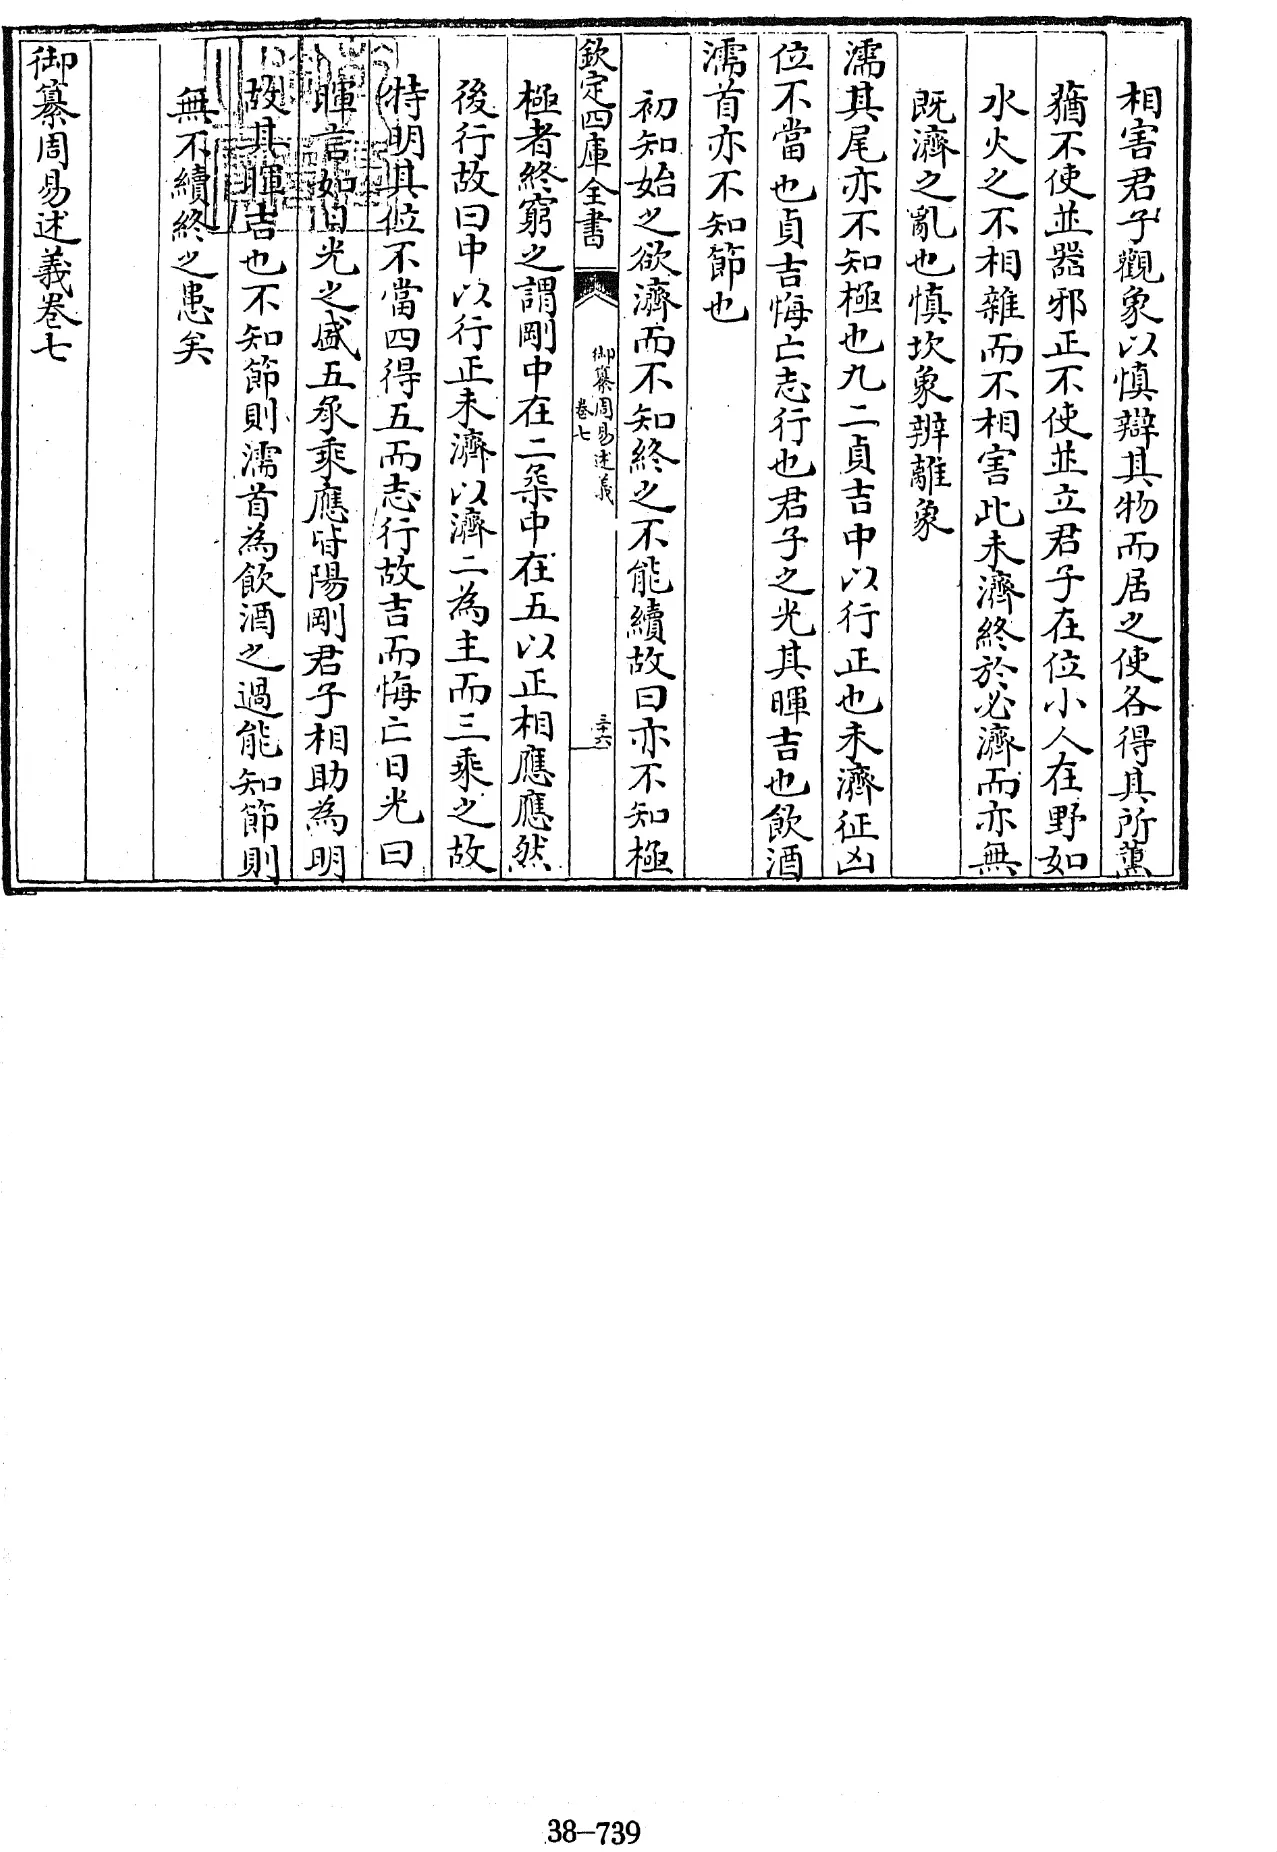 相害君子觀象以慎辯其物而居之使各得其所薰
蕕不使並器邪正不使並立君子在位小人在野如
水火之不相雜而不相害此未濟終於必濟而亦無
既濟之亂也慎坎象辨離象
濡其尾亦不知極也九二貞吉中以行正也未濟征凶
位不當也貞吉悔亡志行也君子之光其暉吉也飲酒
濡首亦不知節也
初知始之欲濟而不知終之不能續故曰亦不知極
欽定四庫全書
御纂周易述義
卷七
三十六
極者終窮之謂剛中在二柔中在五以正相應應然
後行故曰中以行正未濟以濟二為主而三乘之故
特明其位不當四得五而志行故吉而悔亡日光曰
暉言如日光之盛五承乘應皆陽剛君子相助為明
故其暉吉也不知節則濡首為飲酒之過能知節則
無不續終之患矣
御纂周易述義卷七
38-739